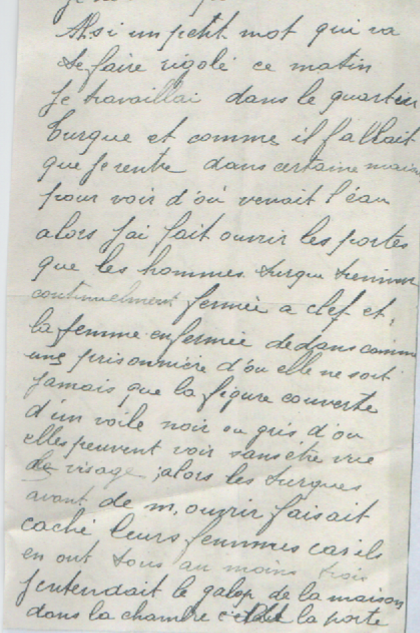 Ausi un petit mot qui va
te faire rigolé ce matin
Je travaillai dans le quartier
Turque et comme il fallait
que je rentre dans certaine maison
pour voir d'où venait l'eau
alors j'ai fait ouvrir les portes
que les hommes turque tiennne
continuelment fermée a clef et,
la femme enfermée dedans comme
une prisonnière d'ou elle ne sort
jamais que la figure couverte
d'un voile noir ou gris d'ou
elles peuvent voir sans être vue
de visage, alors les turques
avant de m, ouvrir faisait
caché leurs femmes car ils
en ont tous au moins trois
J'entendait le galop de la maison
dans la chambre la porte